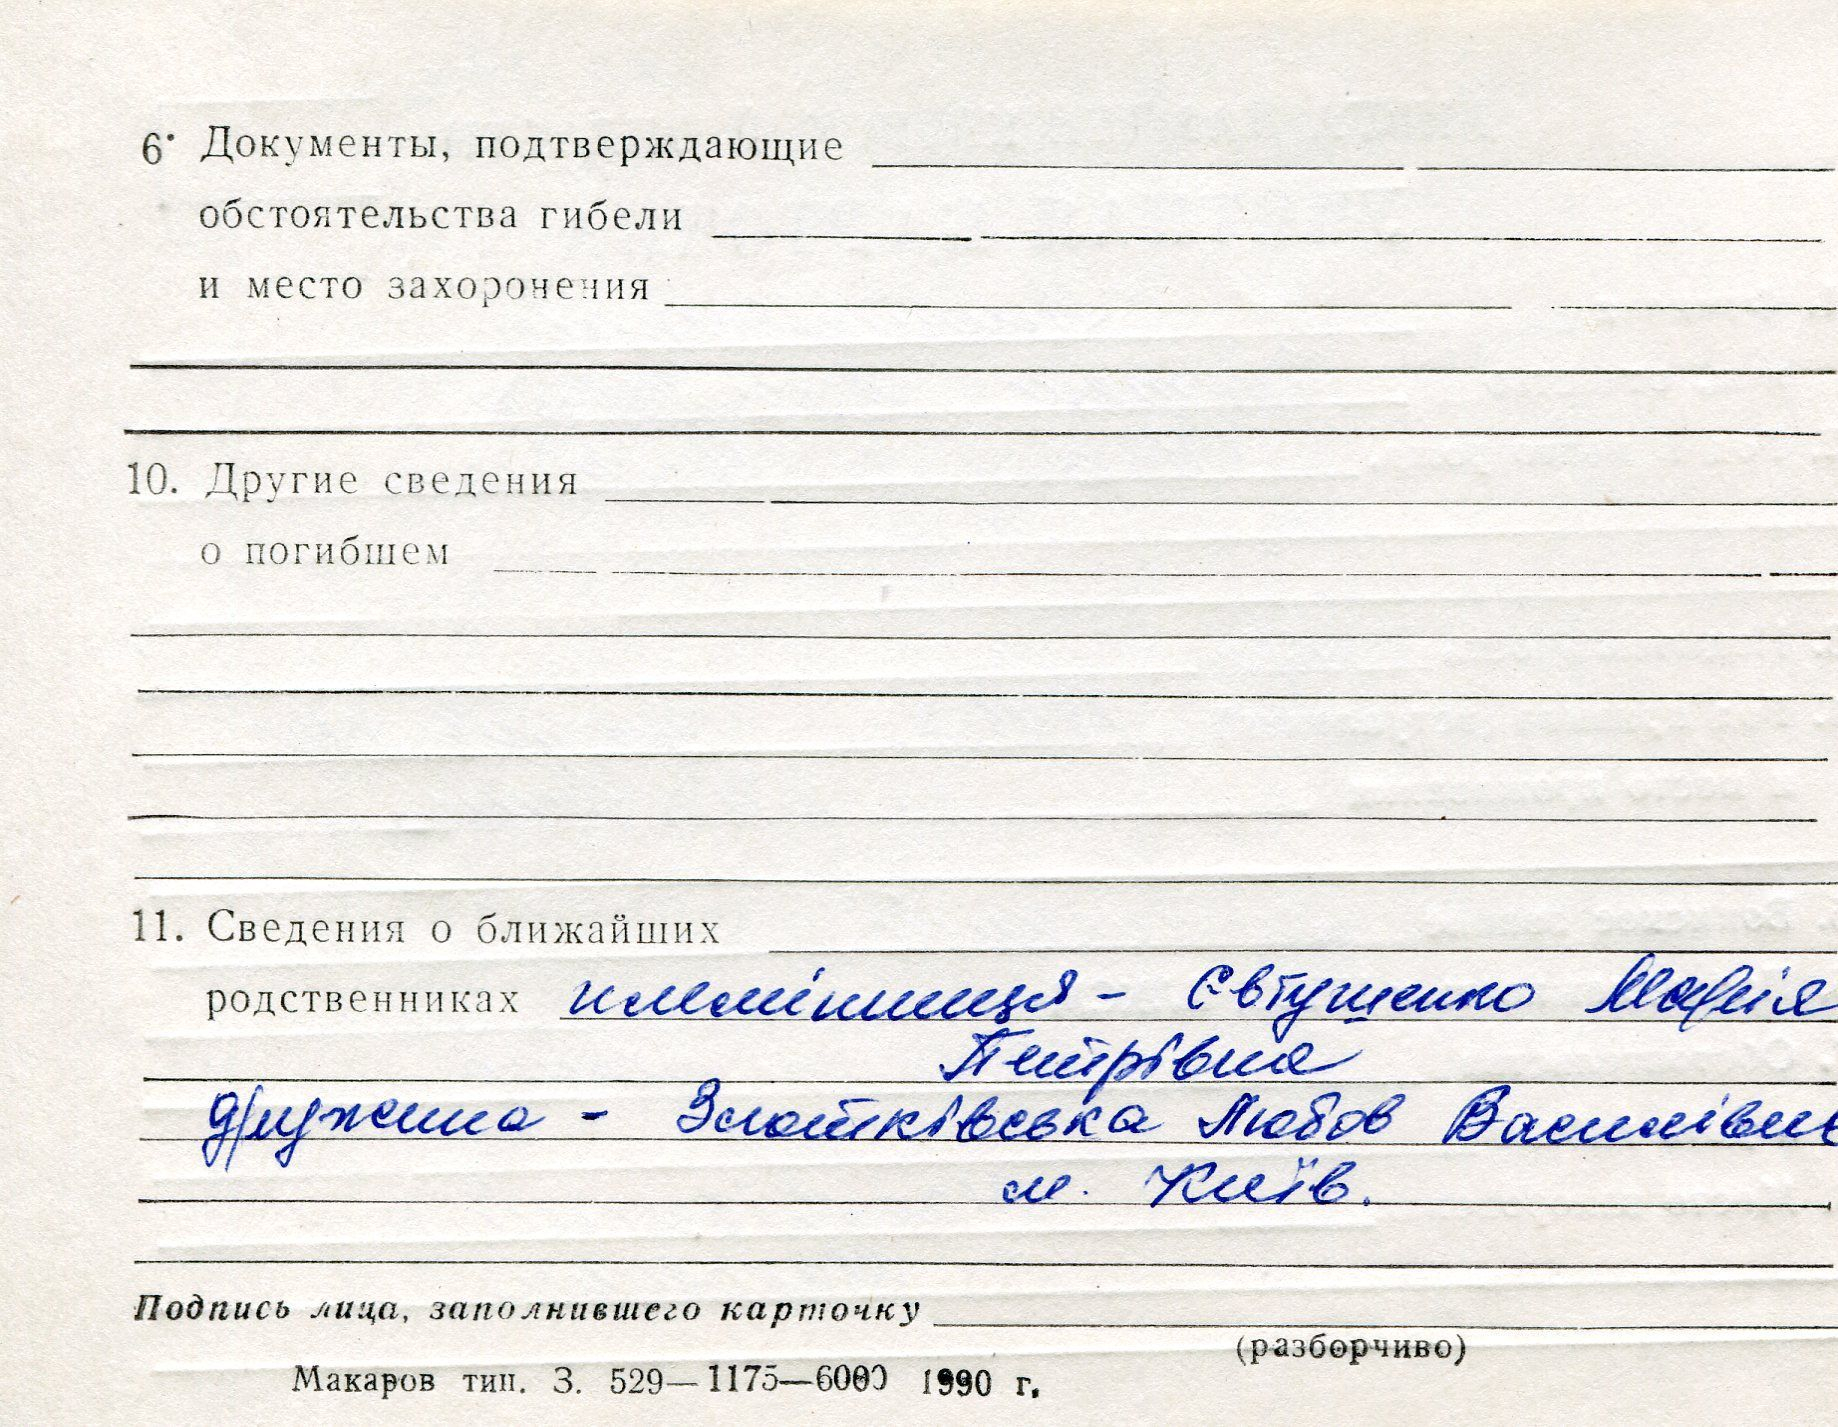 6. Документы, подтверждающие
обстоятельства гибели
и место захоронения
10. Другие сведения
о погибшем
11. Сведения о ближайших
родственниках племінниця - Євтушенко Марія
Петрівна
дружина - Злотківська Любов Василівн
м. Київ.
Подпись лица, заполнившего карточку
(разборчиво)
Макаров тип. З. 529—1175—6000 1990 г.